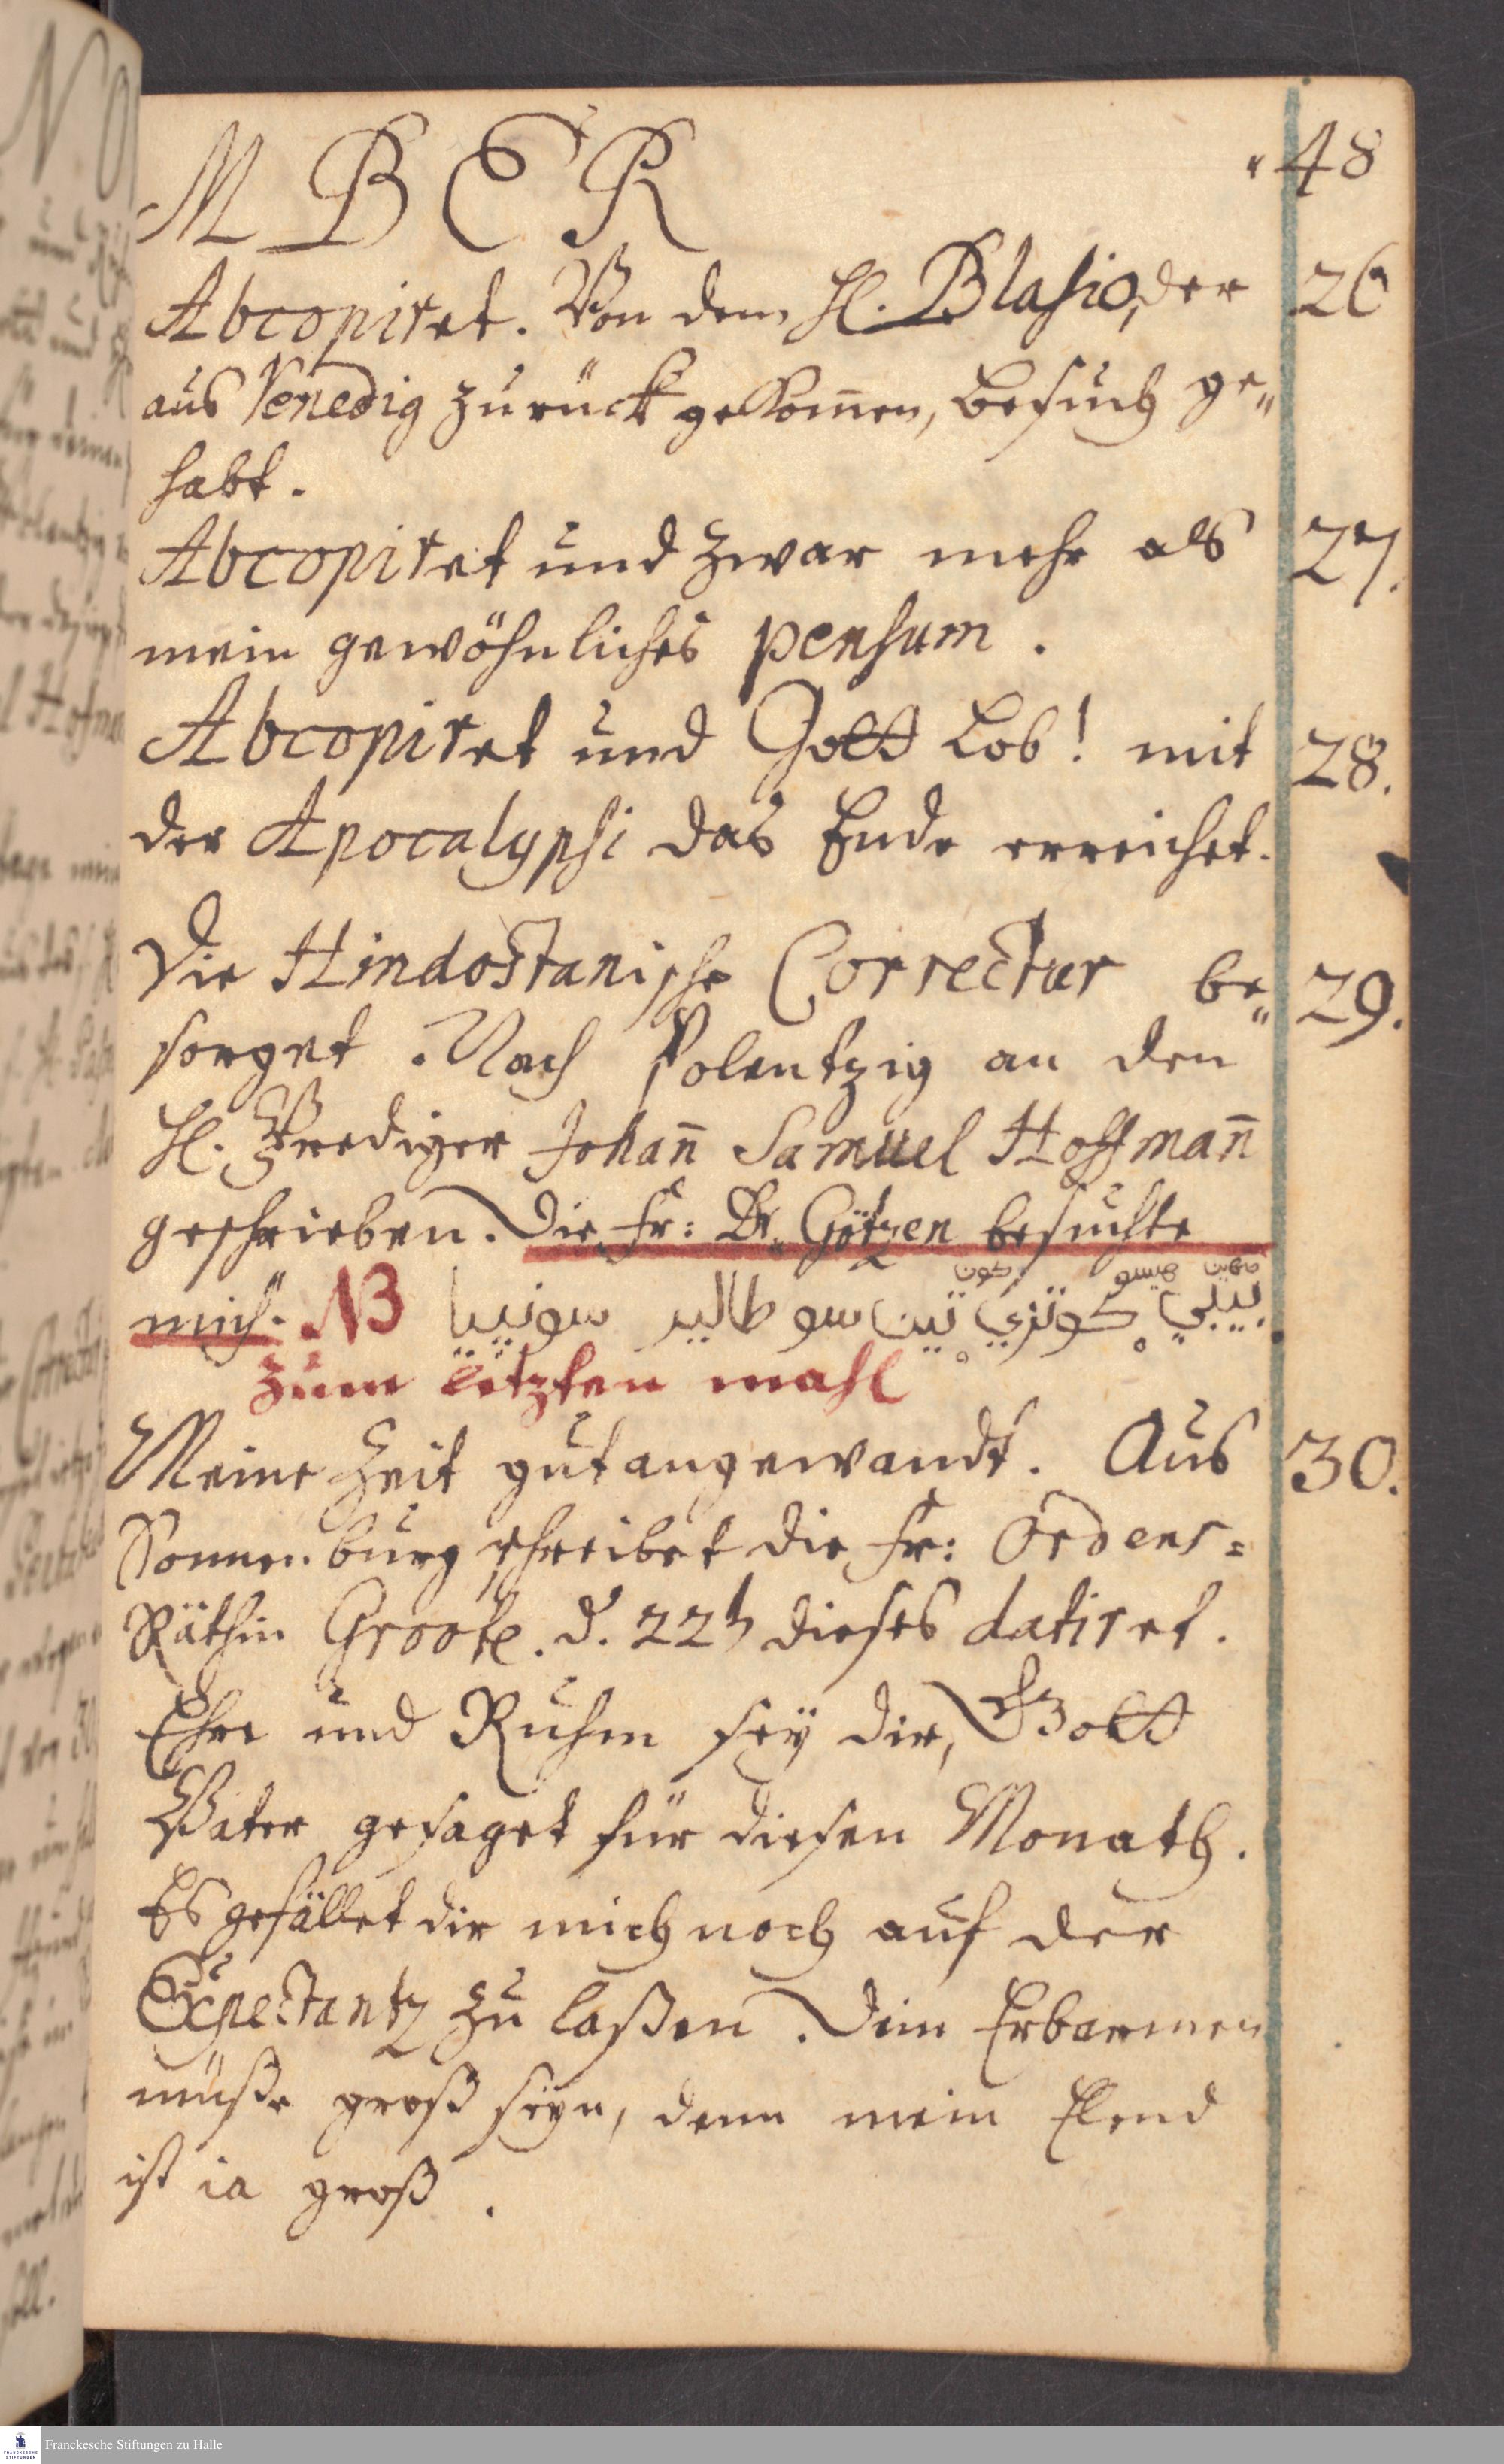 M B E R
48
Abcopiret. Von dem H. Blasio, der 26
aus Venedig zurück gekom̄en, besuch ge„
habt.
Abcopiret und zwar mehr als 27.
mein gewöhnliches pensum.
Abcopiret und Gott Lob! mit 28.
der Apocalypsi das Ende erreichet.
Die Hindostanische Correctur be„ 29.
sorget. Nach Polentzig an den
H. Prediger Johan̄ Samuel Hoffman̄
geschrieben. Die Fr: Dr. Götzen besuchte
mich. NB
zum letzten mahl
Meine Zeit gut angewandt. Aus 30.
Sonnenburg schreibet die Fr: Ordens=
Räthin Groote. d. 22t dieses datiret.
Ehre und Ruhm seÿ dir, Gott
Vater gesaget für diesen Monath.
Es gefället dir mich noch auf der
Expectantz zu laßen. Dein Erbarmen
müße groß seyn, denn mein Elend
ist ia groß.
Franckesche Stiftungen zu Halle